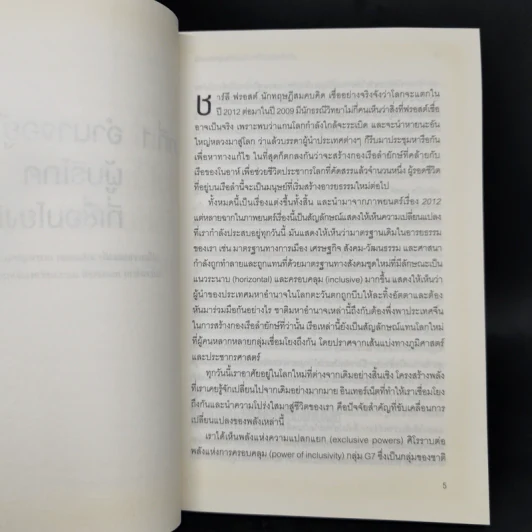 ชาร์ลี ฟรอสต์ นักทฤษฎีสมคบคิด เชื่ออย่างจริงจังว่าโลกจะแตกใน
ปี 2012 ต่อมาในปี 2009 มีนักธรณีวิทยาไม่กี่คนเห็นว่าสิ่งที่ฟรอสต์เชื่อ
อาจเป็นจริง เพราะพบว่าแกนโลกกำลังใกล้จะระเบิด และจะนำหายนะอัน
ใหญ่หลวงมาสู่โลก ว่าแล้วบรรดาผู้นำประเทศต่างๆ ก็รีบมาประชุมหารือกัน
เพื่อหาทางแก้ไข ในที่สุดก็ตกลงกันว่าจะสร้างกองเรือลำยักษ์ที่คล้ายกับ
เรือของโนอาห์ เพื่อช่วยชีวิตประชากรโลกที่คัดสรรแล้วจำนวนหนึ่ง ผู้รอดชีวิต
ที่อยู่บนเรือลำนี้จะเป็นมนุษย์ที่เริ่มสร้างอารยธรรมใหม่ต่อไป
ทั้งหมดนี้เป็นเรื่องแต่งขึ้นทั้งสิ้น และนำมาจากภาพยนตร์เรื่อง 2012
แต่หลายฉากในภาพยนตร์เรื่องนี้เป็นสัญลักษณ์แสดงให้เห็นความเปลี่ยนแปลง
ที่เรากำลังประสบอยู่ทุกวันนี้ มันแสดงให้เห็นว่ามาตรฐานเดิมในอารยธรรม
ของเรา เช่น มาตรฐานทางการเมือง เศรษฐกิจ สังคม-วัฒนธรรม และศาสนา
กำลังถูกทำลายและถูกแทนที่ด้วยมาตรฐานทางสังคมชุดใหม่ที่มีลักษณะเป็น
แนวระนาบ (horizontal) และครอบคลุม (inclusive) มากขึ้น แสดงให้เห็นว่า
ผู้นำของประเทศมหาอำนาจในโลกตะวันตกถูกบีบให้ละทิ้งอัตตาและต้อง
หันมาร่วมมือกันอย่างไร ชาติมหาอำนาจเหล่านี้ถึงกับต้องพึ่งพาประเทศจีน
ในการสร้างกองเรือลำยักษ์ที่ว่านั้น เรือเหล่านี้ยังเป็นสัญลักษณ์แทนโลกใหม่
ที่ผู้คนหลากหลายกลุ่มเชื่อมโยงถึงกัน โดยปราศจากเส้นแบ่งทางภูมิศาสตร์
และประชากรศาสตร์
ทุกวันนี้เราอาศัยอยู่ในโลกใหม่ที่ต่างจากเดิมอย่างสิ้นเชิง โครงสร้างพลัง
ที่เราเคยรู้จักเปลี่ยนไปจากเดิมอย่างมากมาย อินเทอร์เน็ตที่ทำให้เราเชื่อมโยง
ถึงกันและนำความโปร่งใสมาสู่ชีวิตของเรา คือปัจจัยสำคัญที่ขับเคลื่อนการ
เปลี่ยนแปลงของพลังเหล่านี้
เราได้เห็นพลังแห่งความแปลกแยก (exclusive powers) ศิโรราบต่อ
พลังแห่งการครอบคลุม (power of inclusivity) กลุ่ม G7 ซึ่งเป็นกลุ่มของชาติ
5